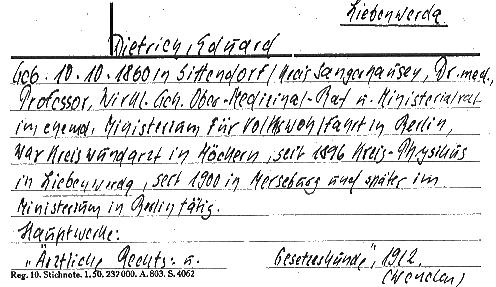 Liebenwerda
Dietrich, Eduard
Geb. 10.10.1860 in Sittendorf/Kreis Sangerhausen, Dr. med.,
Professor, Wirkl. Geh. Ober-Medicinal-Rat u. Ministerialrat
im ehemal. Ministerium für Volkswohlfahrt in Berlin,
war Kreiswundarzt in Möckern, seit 1896 Kreis-Physikus
in Liebenwerda, seit 1900 in Merseburg und später im
Ministerium in Berlin tätig.
Hauptwerke:
"Ärztliche Rechts- u. Gesetzeskunde", 1912.
Reg. 10. Stichnote. 1. 50. 237000. A. 803. S. 4062